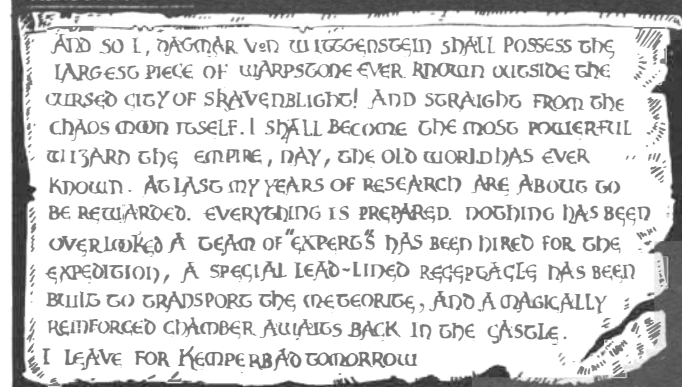 AND SO I, DAGMAR VON WITTGENSTEIN SHALL POSSESS THE
LARGEST PIECE OF WARPSTONE EVER KNOWN OUTSIDE THE
CURSED CITY OF SKAVENBLIGHT! AND STRAIGHT FROM THE
CHAOS MOON ITSELF. I SHALL BECOME THE MOST POWERFUL
WIZARD THE EMPIRE, NAY, THE OLD WORLD HAS EVER
KNOWN. AT LAST MY YEARS OF RESEARCH ARE ABOUT TO
BE REWARDED. EVERYTHING IS PREPARED. NOTHING HAS BEEN
OVERLOOKED A TEAM OF "EXPERTS" HAS BEEN HIRED FOR THE
EXPEDITION, A SPECIAL LEAD-LINED RECEPTACLE HAS BEEN
BUILT TO TRANSPORT THE METEORITE, AND A MAGICALLY
REINFORCED CHAMBER AWAITS BACK IN THE CASTLE.
I LEAVE FOR KEMPERBAD TOMORROW